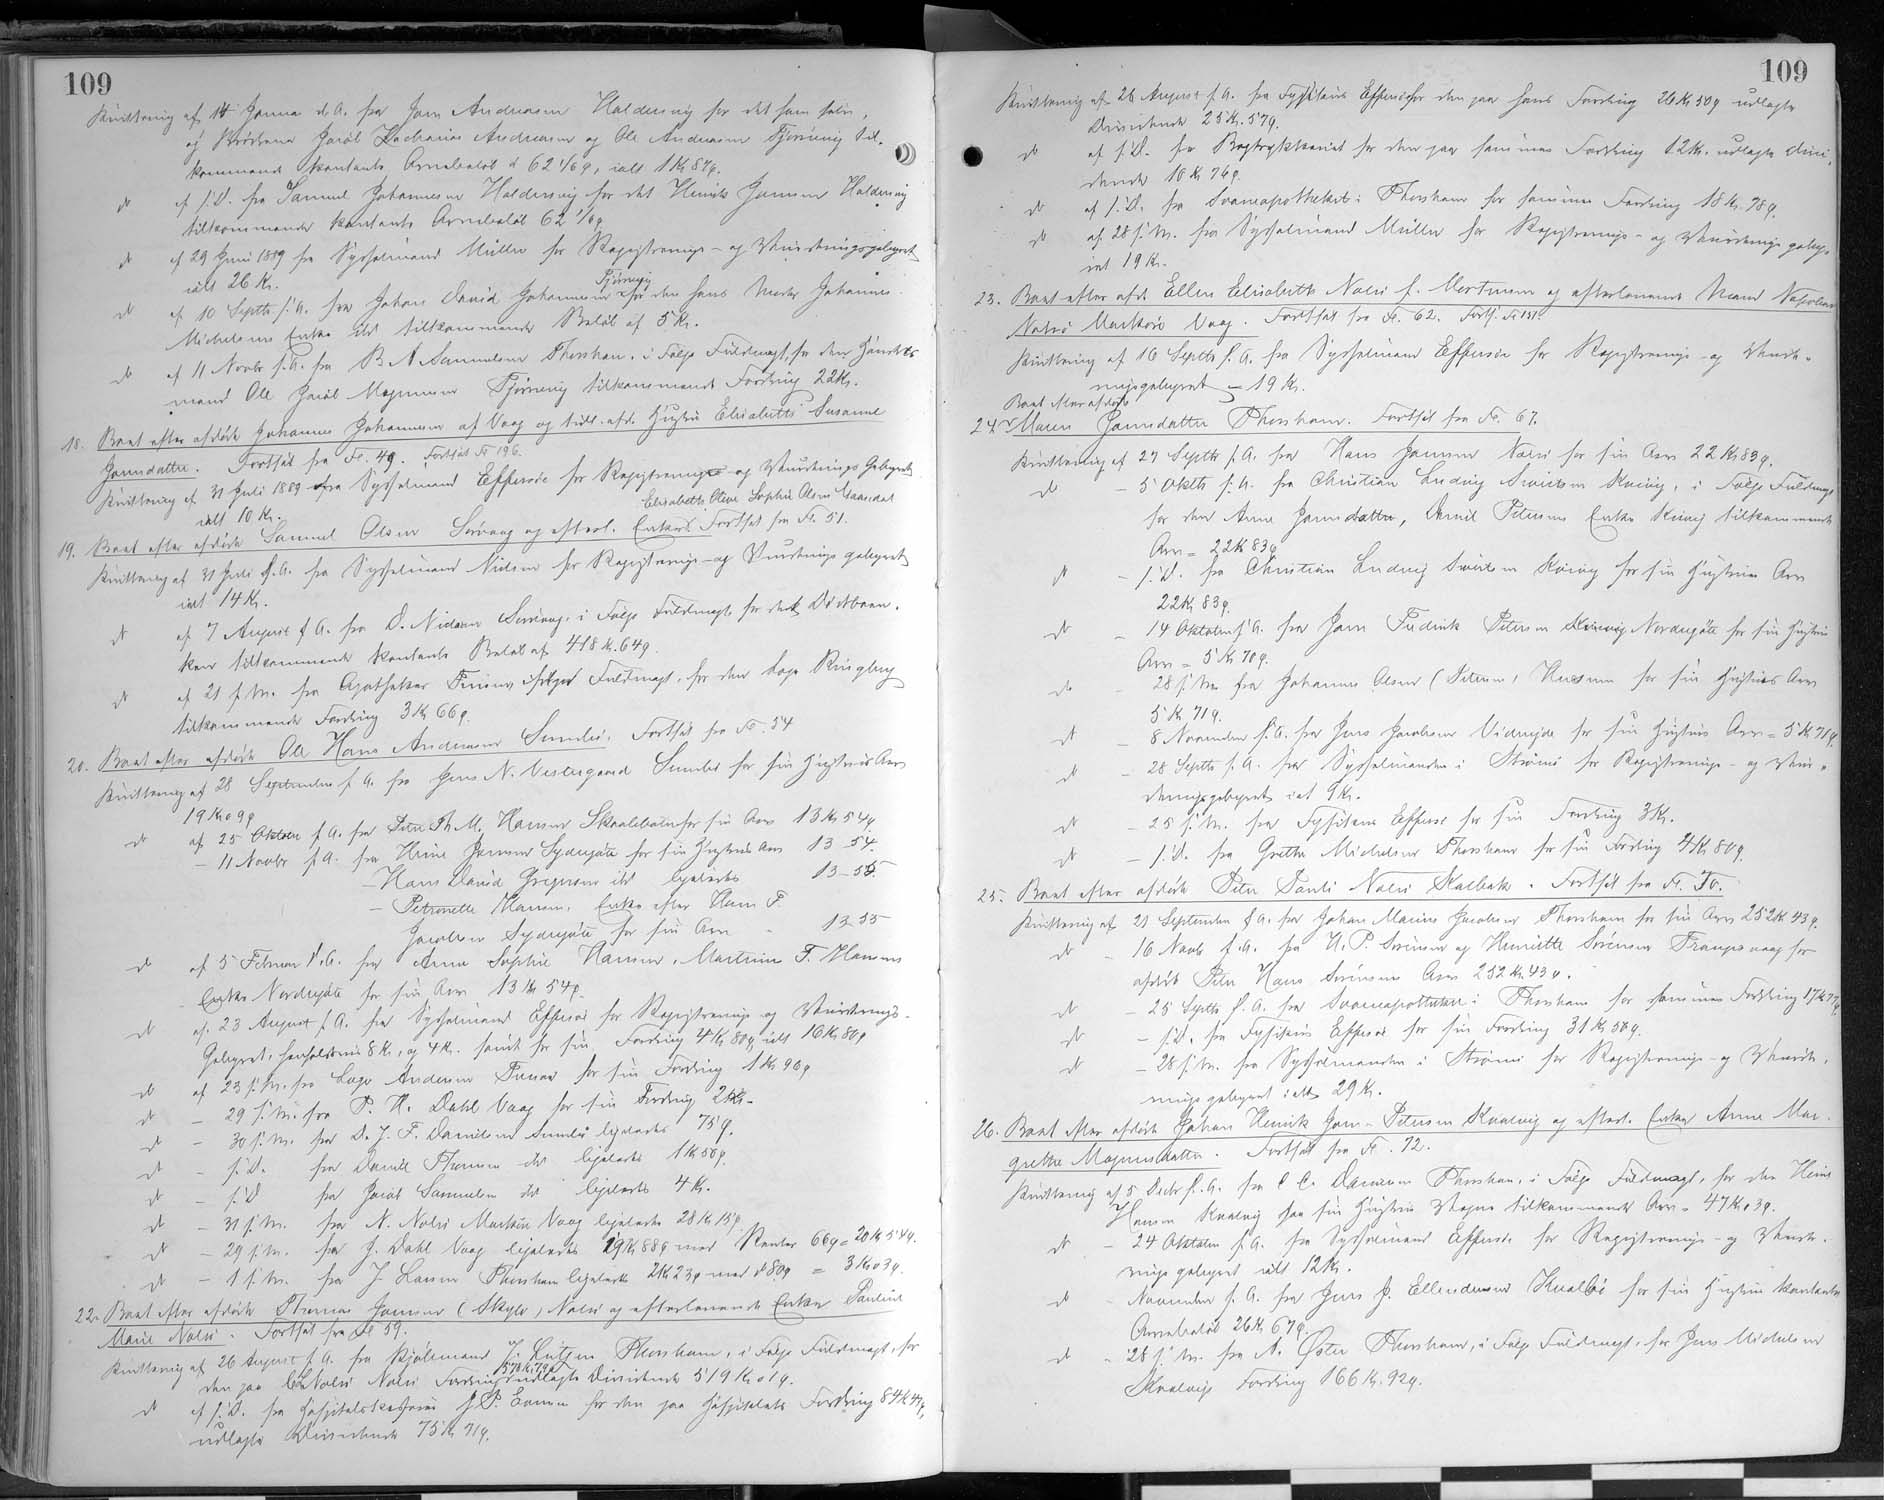 109
Kvittering af 14 Januar d. A. fra Jens Andreasen Haldersvig for det ham selv,
og Brødrene Jacob Zacharias Andreasen og Ole Andreasen Tjørnevig til-
kommende kontante Arvebeløb á 62 1/6 q, ialt 1 Kr 87 q.
dt af s. D. fra Samuel Johannesen Haldersvig for det Henrik Jensen Haldersvig
tilkommende kontante Arvebeløb 62 1/6 q
dt af 29 Juni 1889 fra Sysselmand Müller for Registrerings- og Vurderingsgebyret
ialt 26 Kr.
dt af 10 Septbr f. A. fra Johan David Johannesen Tjørnevig for den hans Moder Johannes
Michelsens Enke ibd tilkommende Beløb af 5 Kr.
dt af 11 Novbr f. A. fra B. A. Samuelsen Thorshavn, i Følge Fuldmagt, for den
mand Ole Jacob Magnussen Tjørnevig tilkommende Fordring 22 Kr.
18. Boet efter afdøde Johannes Johannesen af Vaag og tidl. afd. Hustru Elisabeth Susanne
Jensdatter. Fortsat fra Fo. 49. Fortsat Fo 196.
Kvittering af 31 Juli 1889 fra Sysselmand Effersøe for Registrerings- og Vurderings Gebyret
ialt 10 Kr.
19. Boet efter afdøde Samuel Olsen Sørvaag og efterl. Enke Elisabeth Olive Sophie Olsen Gaasedal Fortsat fra Fo. 51.
Kvittering af 31 Juli f. A. fra Sysselmand Nielsen for Registrerings- og Vurderings gebyret
ialt 14 Kr.
dt af 7 August f A. fra D. Niclasen Sørvaag, i Følge Fuldmagt for
tilkommende kontante Beløb af 418 Kr. 64 q.
dt af 21 s. M. fra Apotheker Finsen ifølge Fuldmagt, for den
tilkommende Fordring 3 Kr 66 q.
20. Boet efter afdøde Ole Hans Andreasen Sumbø. Fortsat fra Fo. 54
Kvittering af 28 September f A. fra Jens N. Vestergaard Sumbø for sin Hustrus Arv
19 Kr 09 q
dt af 25 Oktober f A. fra Peter Th. M. Hansen Skaalebotn for sin Arv 13 Kr 54 q.
- 11 Novbr f A. fra Heine Jensen Sydregøte for sin Hustrus Arv 13 - 54.
- Hans David Gregersen ibd ligeledes 13 - 55.
- Petronelle Hansen, Enke efter Hans P.
Jacobsen Sydregøte for sin Arv - 13 55
dt af 5 Februar d. A. fra Anna Sophie Hansen, Martinus F. Hansens
Enke Nordregøte for sin Arv 13 Kr 54 q.
dt af 23 August f A. fra Sysselmand Effersøe for Registrerings og Vurderings-
Gebyret, henholdsvis 8 Kr. og 4 Kr. samt for sin Fordring 4 Kr 80 q, ialt 16 Kr 80 q
dt af 23 s. M. fra Andersen for sin Fordring 1 Kr 90 q
dt - 29 s. M. fra P. H. Dahl Vaag for sin Fordring 2 Kr -
dt - 30 s. M. fra D. J. F. Danielsen Sumbø ligeledes 75 q.
dt - s. D. fra Daniel Thomsen ibd ligeledes 1 Kr 50 q
dt - s. D fra Jacob Samuelsen ibd ligeledes 4 Kr.
dt - 31 s. M. fra N. Nolsø Vaag ligeledes 28 Kr 15 q
dt - 29 s. M. fra J. Dahl Vaag ligeledes 19 Kr 88 q med Renter 66 q = 20 Kr 54 q.
dt - 1 s. M. fra J. Thorshavn ligeledes 2 Kr 23 q med d 80 q = 3 Kr 03 q.
22. Boet efter afdøde Thomas Jensen (Skyle) Nolsø og efterlevende Enke Pauline
Marie Nolsø. Fortsat fra Fo 59.
Kvittering af 26 August f A. fra Kjøbmand J. Lützen Thorshavn, i Følge Fuldmagt, for
den paa Nolsø Nolsø Fordring 578 Kr. 79 q udlagte Dividende 519 Kr 01 q.
dt af s. D. fra Hospitalskasserer for den paa Hospitalets Fordring 84 Kr 41 q,
udlagte Dividende 75 Kr 71 q.
109
Kvittering af 26 August f. A. fra Fysikus Effersøe for den paa hans Fordring 28 Kr 50 q udlagte
Dividende 25 Kr. 57 q.
dt af s. D. fra Bogtrykkeriet for den paa sammes Fordring 12 Kr. udlagte Divi-
dende 10 Kr 76 q.
dt af s. D. fra Svaneapotheket i Thorshavn for sammes Fordring 18 Kr. 78 q.
dt af 28 s. M. fra Sysselmand Müller for Registrerings- og Vurderings geby-
ret 19 Kr.
23. Boet efter afd. Ellen Elisabeth Nolsø f. Mortensen og efterlevende Mand Napoleon
Nolsø Vaag. Fortsat fra Fo. 62. Forts. Fo 151.
Kvittering af 16 Septbr f. A. fra Sysselmand Effersøe for Registrerings- og Vurde-
ringsgebyret - 19 Kr.
24. Boet efter afdøde Maren Jensdatter Thorshavn. Fortsat fra Fo. 67.
Kvittering af 27 Septbr f. A. fra Hans Jensen Næs for sin Arv 22 Kr 83 q.
dt - 5 Oktbr f. A. fra Christian Ludvig Kvivig, i Følge Fuldmagt
for den Anne Jensdatter, Daniel Petersens Enke Kvivig tilkommende
Arv = 22 Kr 83 q
dt - s. D. fra Christian Ludvig Kvivig for sin Hustrus Arv
22 Kr 83 q.
dt - 14 Oktober f A. fra Jens Fredrik Petersen Nordregøte for sin Hustrus
Arv = 5 Kr 70 q.
dt - 28 s. M. fra Johannes Olsen (Petersen) for sin Hustrues Arv
5 Kr 71 q.
dt - 8 November f. A. fra Jens Jacobsen Viderejde for sin Hustrus Arv = 5 Kr 71 q.
dt - 28 Septbr f. A. fra Sysselmanden i Strømø for Registrerings- og Vur-
deringsgebyret ialt 9 Kr.
dt - 25 s. M. fra Fysikus Effersøe for sin Fordring 3 Kr.
dt - s. D. fra Grethe Michelsen Thorshavn for sin Fordring 4 Kr 80 q.
25. Boet efter afdøde Peter Poul Nolsø Kalbak. Fortsat fra Fo. 70.
Kvittering af 21 September f A. fra Johan Marius Jacobsen Thorshavn for sin Arv 252 Kr 43 q.
dt - 16 Novb f. A. fra H. P. Sørensen og Henriette Sørensen Trangisvaag for
afdøde Peter Hans Sørensens Arv 252 Kr 43 q.
dt - 25 Septbr f. A. fra Svaneapotheket i Thorshavn for sammes Fordring 17 Kr 77 q
dt - s. D. fra Fysikus Effersøe for sin Fordring 31 Kr 50 q.
dt - 28 s. M. fra Sysselmanden i Strømø for Registrerings- og Vurde-
rings gebyret ialt 29 Kr.
26. Boet efter afdøde Johan Henrik Jens-Petersen Kvalvig og efterl. Enke Anne Mar-
grethe Magnusdatter. Fortsat fra Fo. 72.
Kvittering af 5 Decbr f. A. fra C. C. Danielsen Thorshavn, i Følge Fuldmagt, for den Heine
Hansen Kvalvig paa sin Hustrus Vegne tilkommende Arv - 47 Kr 03 q.
dt - 24 Oktober f. A. fra Sysselmand Effersøe for Registrerings- og Vurde-
rings gebyret ialt 12 Kr.
dt - November f. A. fra Jens J. Ellendersen for sin Hustrus kontante
Arvebeløb 26 Kr 67 q.
dt - 28 s. M. fra A. Øster Thorshavn, i Følge Fuldmagt, for Jens Michelsen
Kvalvigs Fordring 166 Kr. 92 q.